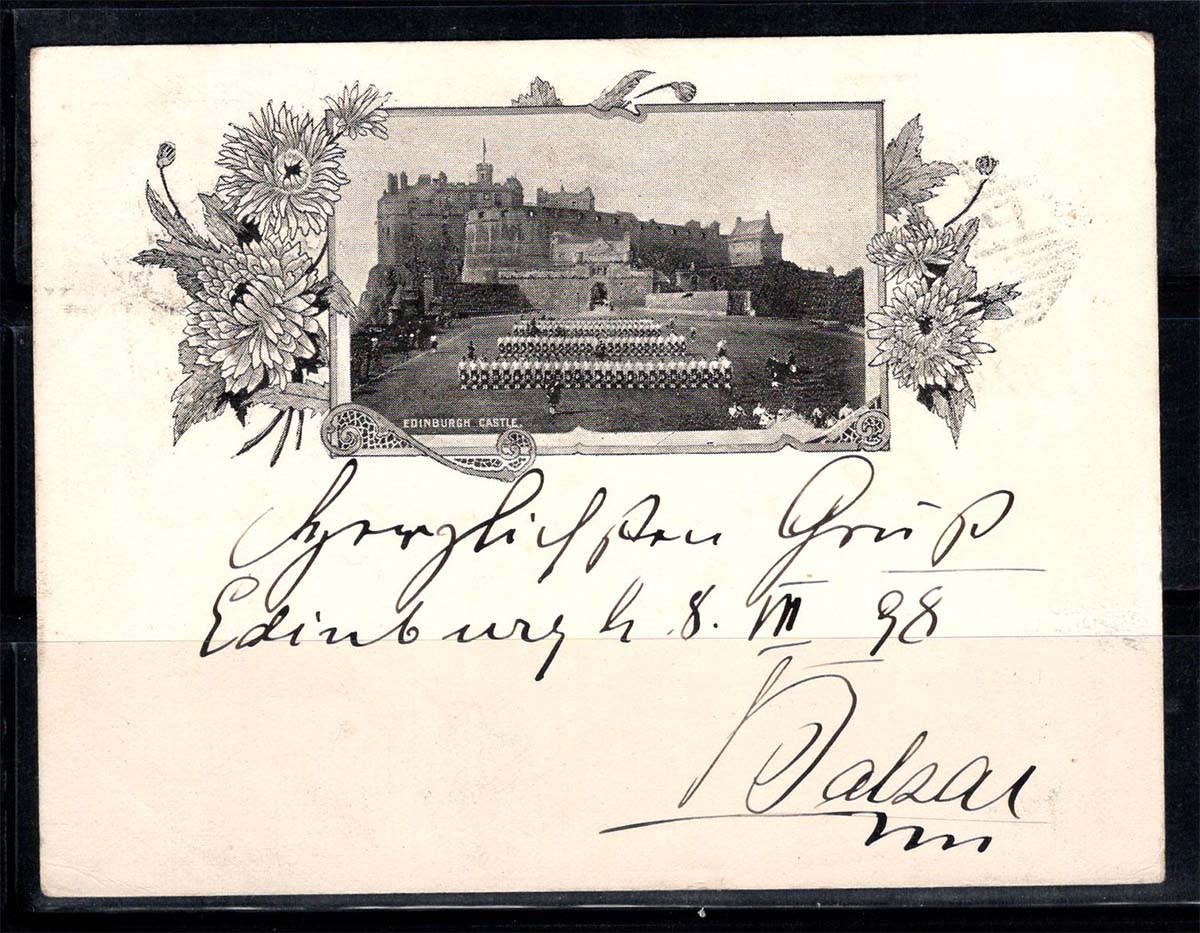 EDINBURGH CASTLE.
Herzlichsten Gruß
Edinburgh 8. VII 98
Balsar